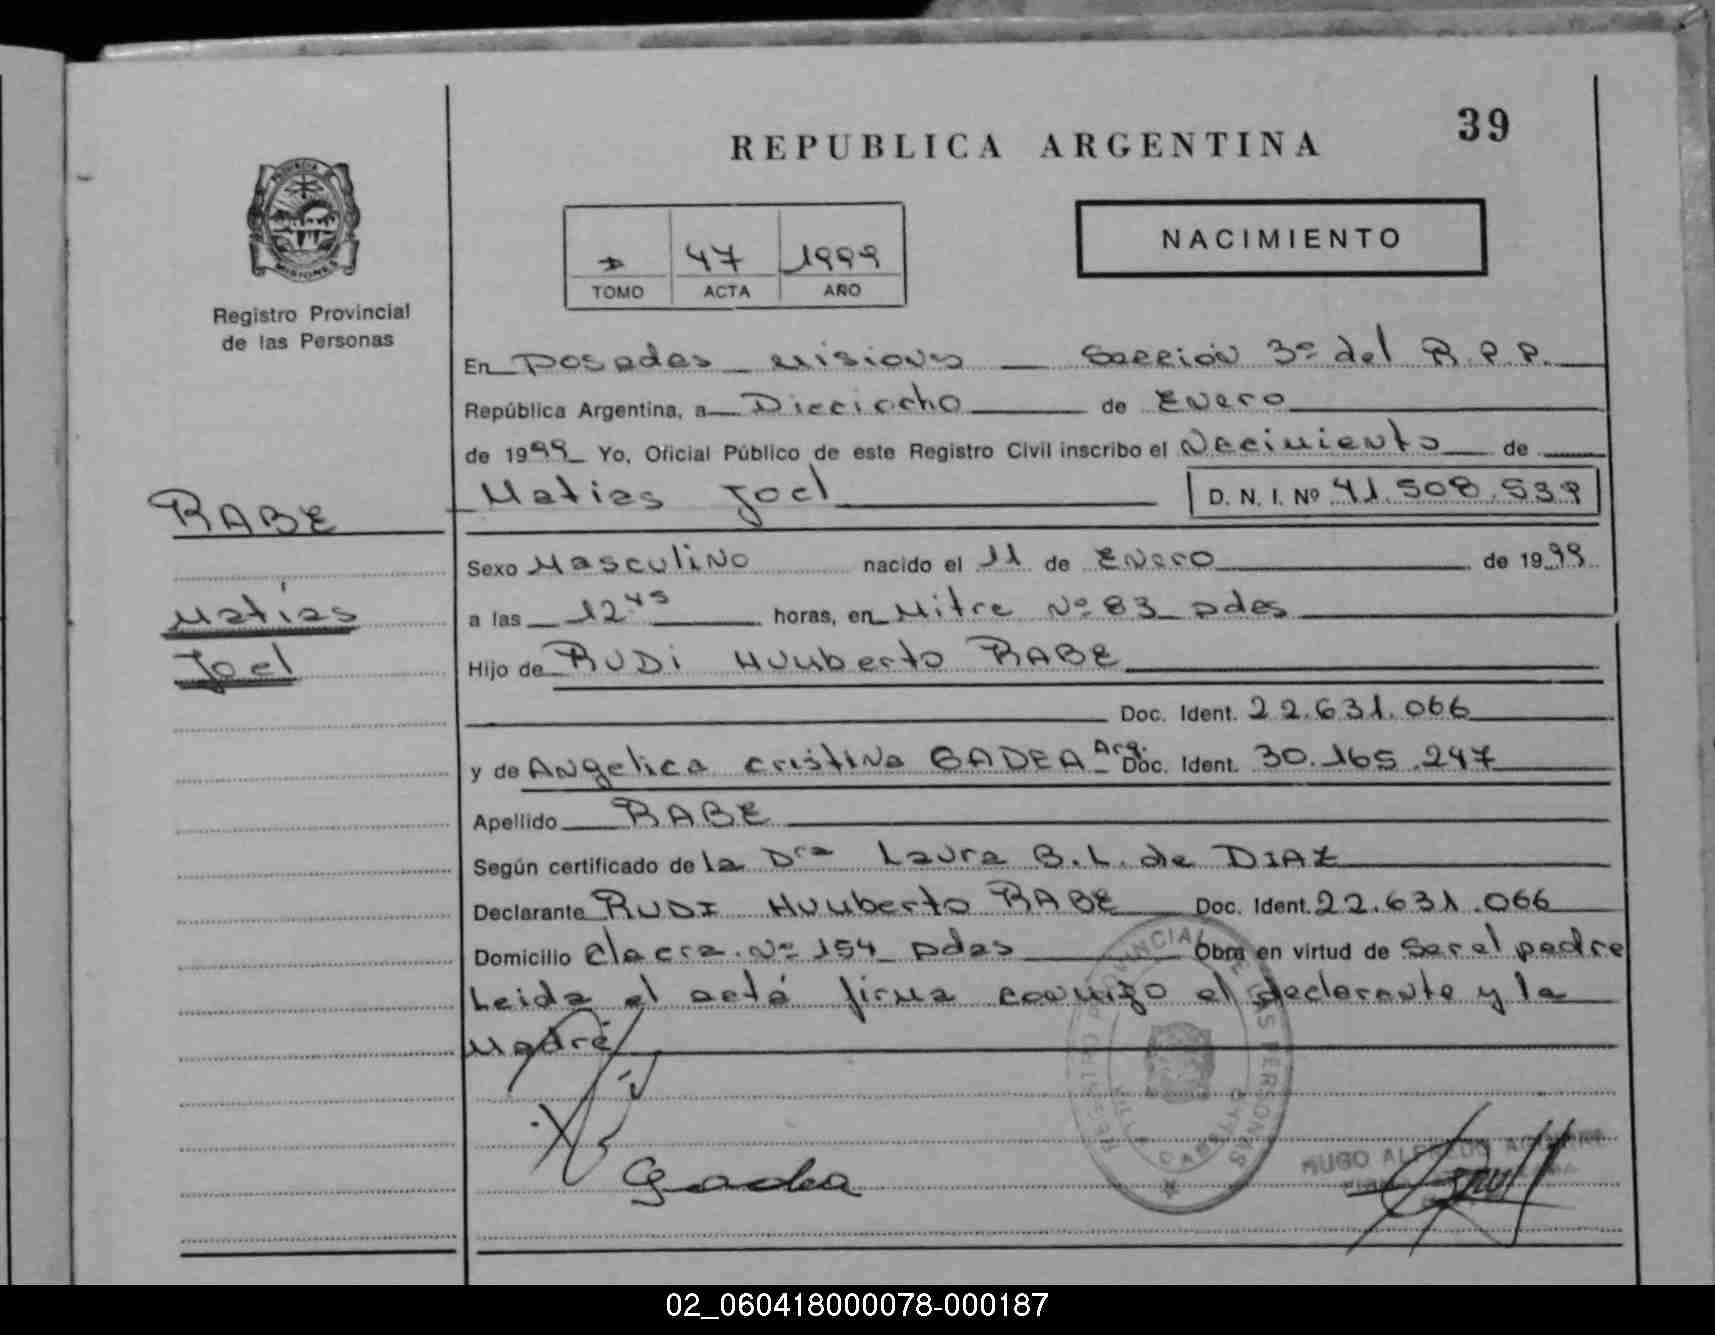 39
REPUBLICA ARGENTINA
NACIMIENTO
47 1999
TOMO ACTA AÑO
PROVINCIA DE MISIONES
Registro Provincial
de las Personas
En Posadas Misiones Sección 3ª del R.P.P.
República Argentina, a Dieciocho de Enero
de 1999 Yo, Oficial Público de este Registro Civil inscribo el Nacimiento de
Matias Joel D. N. I. Nº 41.508.539
RABE
Matías
Joel
Sexo Masculino nacido el 11 de Enero de 1999
a las 12 45 horas, en Mitre Nº 83 pdas
Hijo de RUDI Humberto RABE
Doc. Ident. 22.631.066
y de Angelica Cristina GADEA - Arg. Doc. Ident. 30.165.247
Apellido RABE
Según certificado de la Dra Laura B.L. de DIAZ
Declarante RUDI Humberto RABE Doc. Ident. 22.631.066
Domicilio Chacra Nº 154 pdas Obra en virtud de Ser el padre
Leida el acta firma conmigo el declarante y la
Madre
REGISTRO PROVINCIAL DE LAS PERSONAS
Gadea
HUGO ALFREDO
02_060418000078-000187